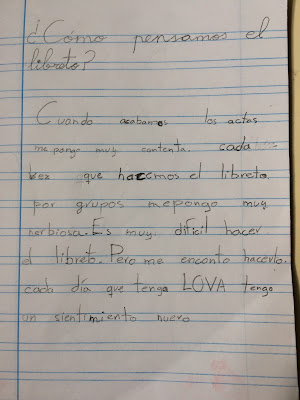 ¿Cómo pensamos el
libreto?
Cuando acabamos los actos
me pongo muy contenta. cada
bex que hacemos el libreto,
por grupos mepongo muy
nerbiosa. Es muy difícil hacer
el libreto. Pero me encanta hacerlo.
cada día que tenga LOVA tengo
un sientimiento nuevo